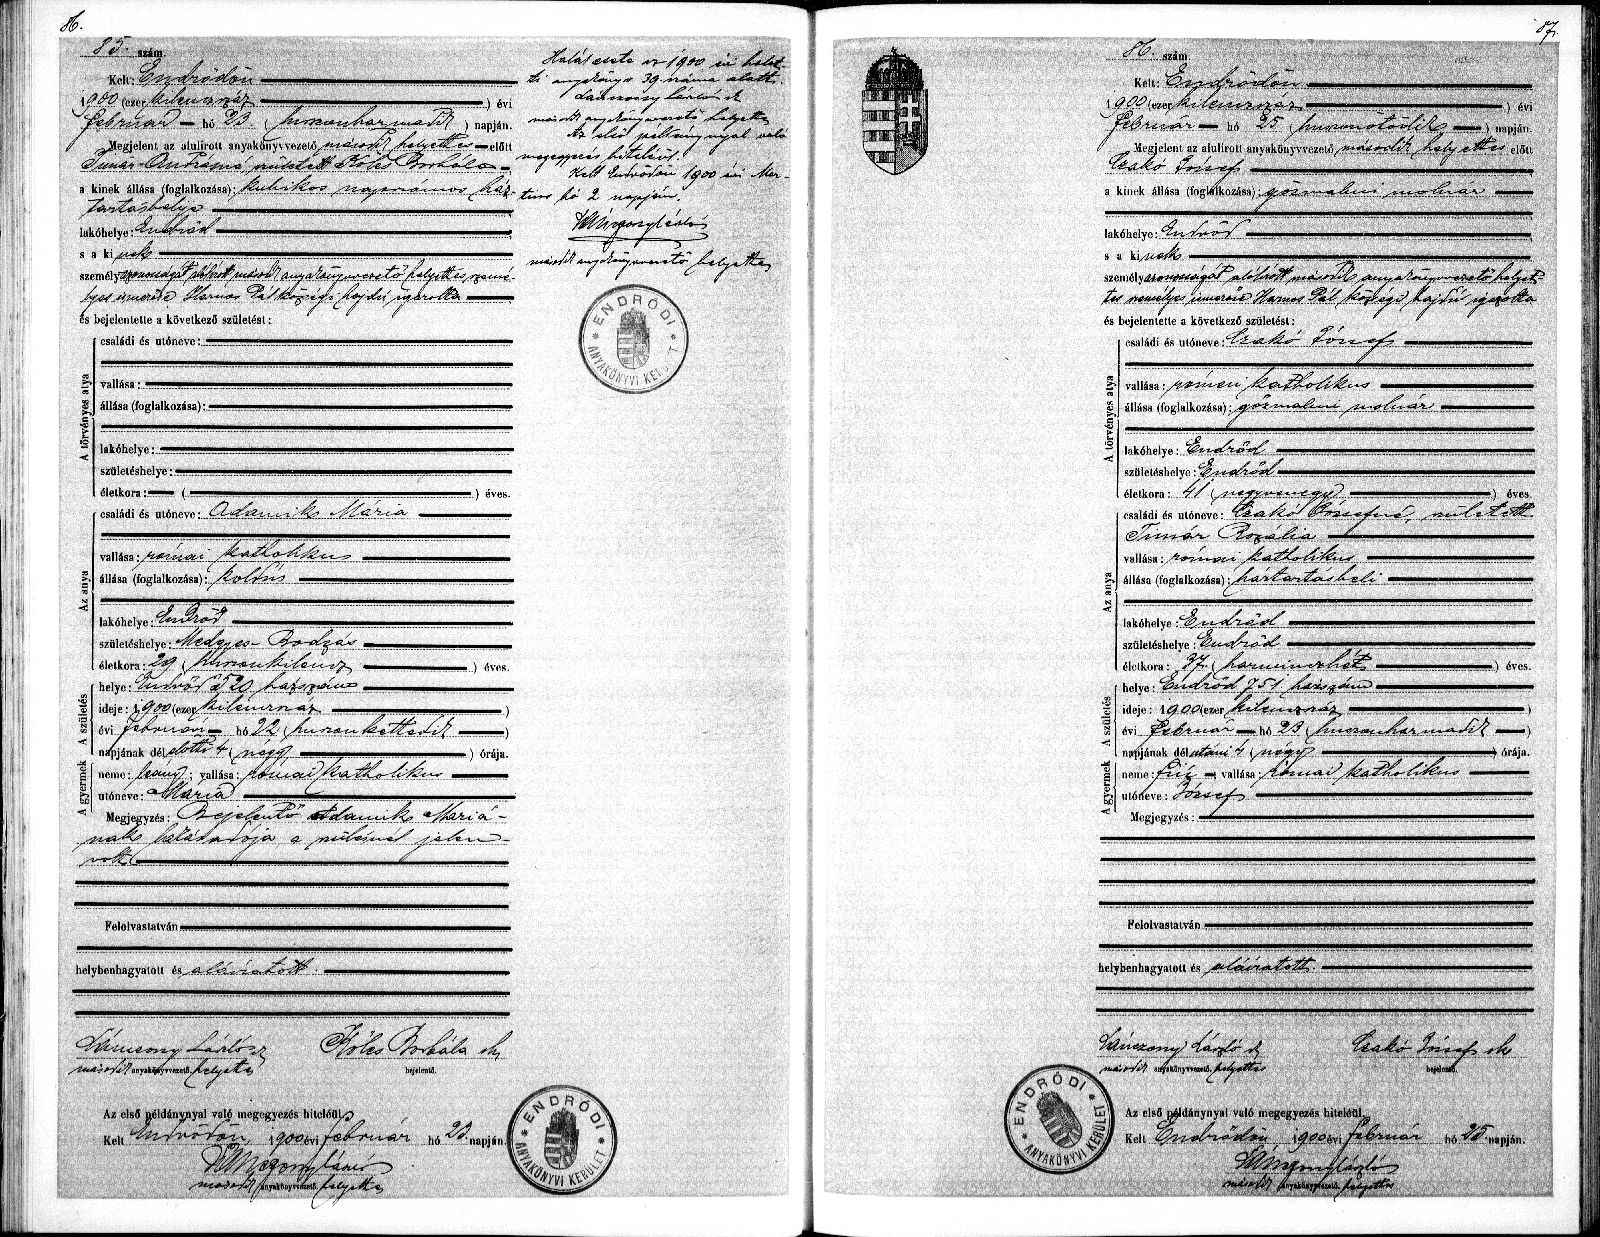 86.
85. szám.
Kelt: Endrődön
1900 (ezer kilenczszáz) évi
február hó 23. (huszonharmadik) napján.
Megjelent az alulirott anyakönyvvezető második helyettes előtt
Timár Andrásné született Kólcs Borbála
a kinek állása (foglalkozása): kubikos napszámos ház-
tartásbelije
lakóhelye: Endrőd
s a kinek
személyazonosságát alólirott másod anyakönyvvezető helyettes szemé-
lyes ismerőse Harnos Pál községi hajdú igazolta
és bejelentette a következő születést:
A törvényes atya
családi és utóneve:
vallása:
állása (foglalkozása):
lakóhelye:
születéshelye:
életkora: ( ) éves.
Az anya
családi és utóneve: Adamik Mária
vallása: római katholikus
állása (foglalkozása): koldus
lakóhelye: Endrőd
születéshelye: Medgyes-Bodzás
életkora: 29 (huszonkilencz) éves.
A születés
helye: Endrőd 520 házszám
ideje: 1900 (ezer kilenczszáz)
évi február hó 22 (huszonkettedik)
napjának délelőtti 4 (négy) órája.
A gyermek
neme: leány; vallása: római katholikus
utóneve: Mária
Megjegyzés: Bejelentő Adamik Máriá-
nak házadója a szülésnél jelen
volt.
Felolvastatván
helybenhagyatott és aláiratott.
Lánczony László sk Kólcs Borbála sk
második anyakönyvvezető helyettes bejelentő.
Az első példánynyal való megegyezés hiteléül.
Kelt Endrődön, 1900 évi február hó 23. napján.
Lánczony László
második anyakönyvvezető. helyettes
ENDRŐDI ANYAKÖNYVI KERÜLET
Halálesete az 1900 évi halot-
ti anyakönyv 39 száma alatt.
Lánczony László sk
második anyakönyvvezető helyettes
Az első példánynyal való
megegyezés hiteléül.
Kelt Endrődön 1900 évi Mar-
tius hó 2 napján.
Lánczony László
második anyakönyvvezető helyettes
ENDRŐDI ANYAKÖNYVI KERÜLET
87.
86. szám.
Kelt: Endrődön
1900 (ezer kilenczszáz) évi
február hó 25 (huszonötödik) napján.
Megjelent az alulirott anyakönyvvezető második helyettes előtt
Czakó József
a kinek állása (foglalkozása): gőzmalmi molnár
lakóhelye: Endrőd
s a kinek
személyazonosságát alólirott második anyakönyvvezető helyet-
tes személyes ismerőse Harnos Pál községi hajdú igazolta
és bejelentette a következő születést:
A törvényes atya
családi és utóneve: Czakó József
vallása: római katholikus
állása (foglalkozása): gőzmalmi molnár
lakóhelye: Endrőd
születéshelye: Endrőd
életkora: 41 (negyvenegy) éves.
Az anya
családi és utóneve: Czakó Józsefné, született
Timár Rozália
vallása: római katholikus
állása (foglalkozása): háztartásbeli
lakóhelye: Endrőd
születéshelye: Endrőd
életkora: 37. (harminczhét) éves.
A születés
helye: Endrőd 751 házszám
ideje: 1900 (ezer kilenczszáz)
évi Február hó 23 (huszonharmadik)
napjának délutáni 4 (négy) órája.
A gyermek
neme: fiú vallása: római katholikus
utóneve: József
Megjegyzés:
Felolvastatván
helybenhagyatott és aláiratott.
Lánczony László sk Czakó József sk
második anyakönyvvezető. helyettes bejelentő.
ENDRŐDI ANYAKÖNYVI KERÜLET
Az első példánynyal való megegyezés hiteléül.
Kelt Endrődön, 1900 évi február hó 25. napján.
Lánczony László
második anyakönyvvezető. helyettes